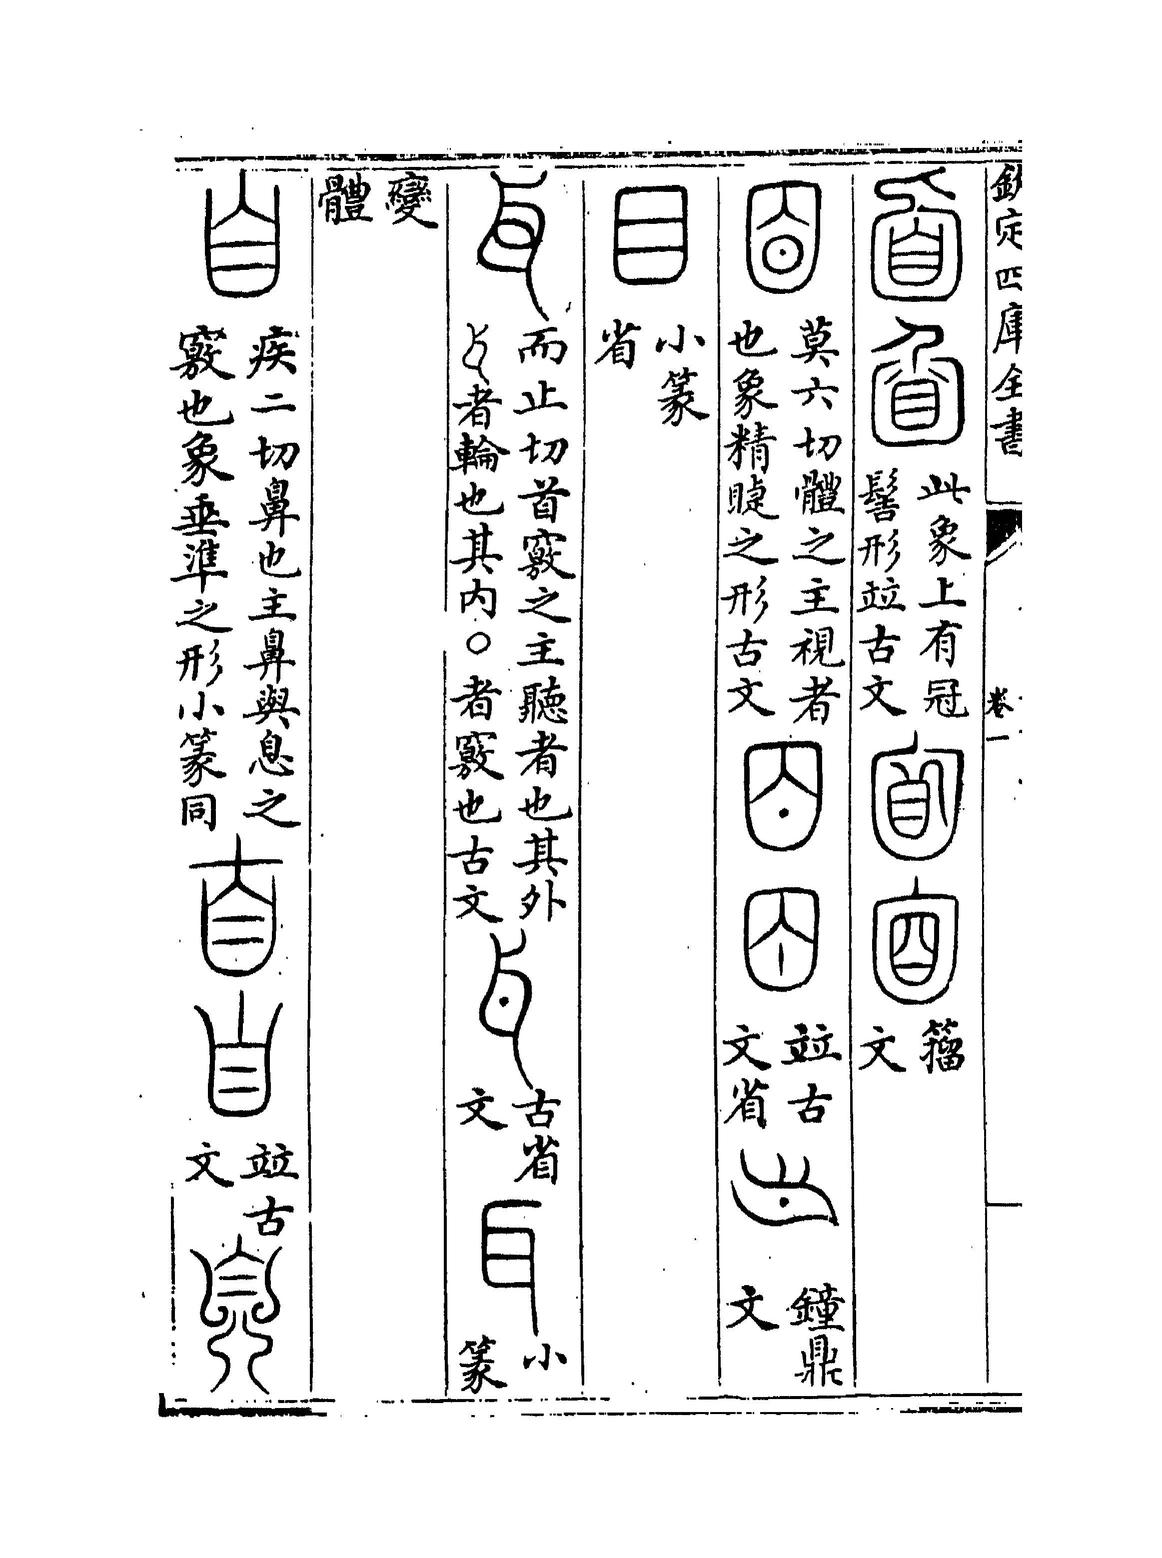 欽定四庫全書
卷一
此象上有冠
髻形竝古文
籀
文
莫六切體之主視者
也象精睫之形古文
竝古
文省
鐘鼎
文
目
小篆
省
而止切首竅之主聽者也其外
者輪也其内〇者竅也古文
古省
文
耳
小
篆
變
體
自
疾二切鼻也主鼻與息之
竅也象垂準之形小篆同
竝古
文